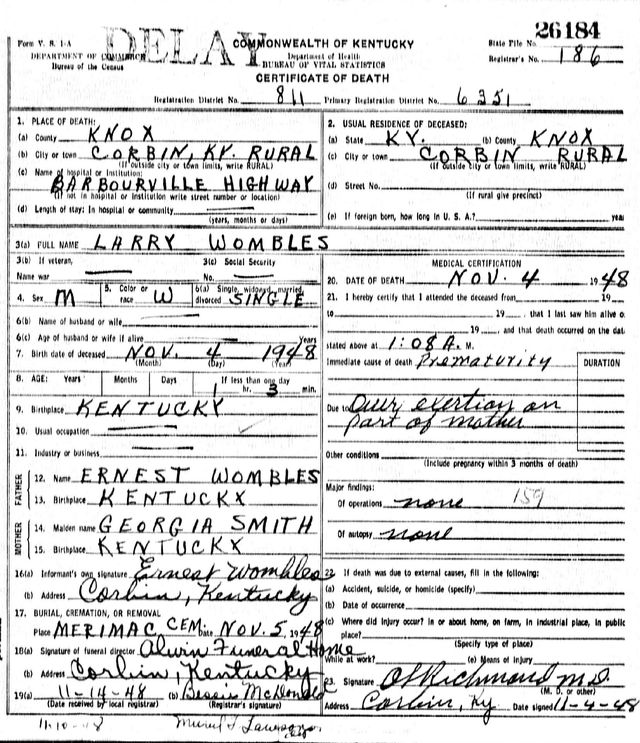 26184
DELAY
Form V. S. 1-A
COMMONWEALTH OF KENTUCKY
State File No.
DEPARTMENT OF COMMERCE
Department of Health
Registrar's No. 186
Bureau of the Census
BUREAU OF VITAL STATISTICS
CERTIFICATE OF DEATH
Registration District No. 811 Primary Registration District No. 6351
1. PLACE OF DEATH:
(a) County KNOX
(b) City or town CORBIN, KY. RURAL
(If outside city or town limits, write RURAL)
(c) Name of hospital or institution:
BARBOURVILLE HIGHWAY
(If not in hospital or institution write street number or location)
(d) Length of stay: In hospital or community
(years, months or days)
2. USUAL RESIDENCE OF DECEASED:
(a) State KY. (b) County KNOX
(c) City or town CORBIN RURAL
(If outside city or town limits, write RURAL)
(d) Street No.
(If rural give precinct)
(e) If foreign born, how long in U. S. A.? years
3(a) FULL NAME LARRY WOMBLES
3(b) If veteran,
Name war
3(c) Social Security
No.
4. Sex M
5. Color or race W
6(a) Single, widowed, married, divorced SINGLE
6(b) Name of husband or wife
6(c) Age of husband or wife if alive Years
7. Birth date of deceased NOV. 4 1948
(Month) (Day) (Year)
8. AGE: Years Months Days If less than one day
1 hr. 3 min.
9. Birthplace KENTUCKY
10. Usual occupation
11. Industry or business
FATHER
12. Name ERNEST WOMBLES
13. Birthplace KENTUCKX
MOTHER
14. Maiden name GEORGIA SMITH
15. Birthplace KENTUCKX
16(a) Informant's own signature Ernest Wombles
(b) Address Corbin, Kentucky
17. BURIAL, CREMATION, OR REMOVAL
Place MERIMAC CEM: Date NOV. 5, 1948
18(a) Signature of funeral director Alwin Funeral Home
(b) Address Corbin, Kentucky
19(a) 11-14-48 (b) Bessie McDonald
(Date received by local registrar) (Registrar's signature)
11-10-48
MEDICAL CERTIFICATION
20. DATE OF DEATH NOV. 4 1948
21. I hereby certify that I attended the deceased from 19
to 19 , that I last saw him alive o
19 , and that death occurred on the dat
stated above at 1:08 A. M.
Immediate cause of death Prematurity
DURATION
Due to Over exertion on
part of mother
Other conditions
(Include pregnancy within 3 months of death)
Major findings:
159
Of operations none
Of autopsy none
22. If death was due to external causes, fill in the following:
(a) Accident, suicide, or homicide (specify)
(b) Date of occurrence
(c) Where did injury occur? In or about home, on farm, in industrial place, in public
place?
(Specify type of place)
While at work? (e) Means of injury
23. Signature O L Richmond M.D.
(M. D. or other)
Address Corbin, Ky Date signed 11-4-48